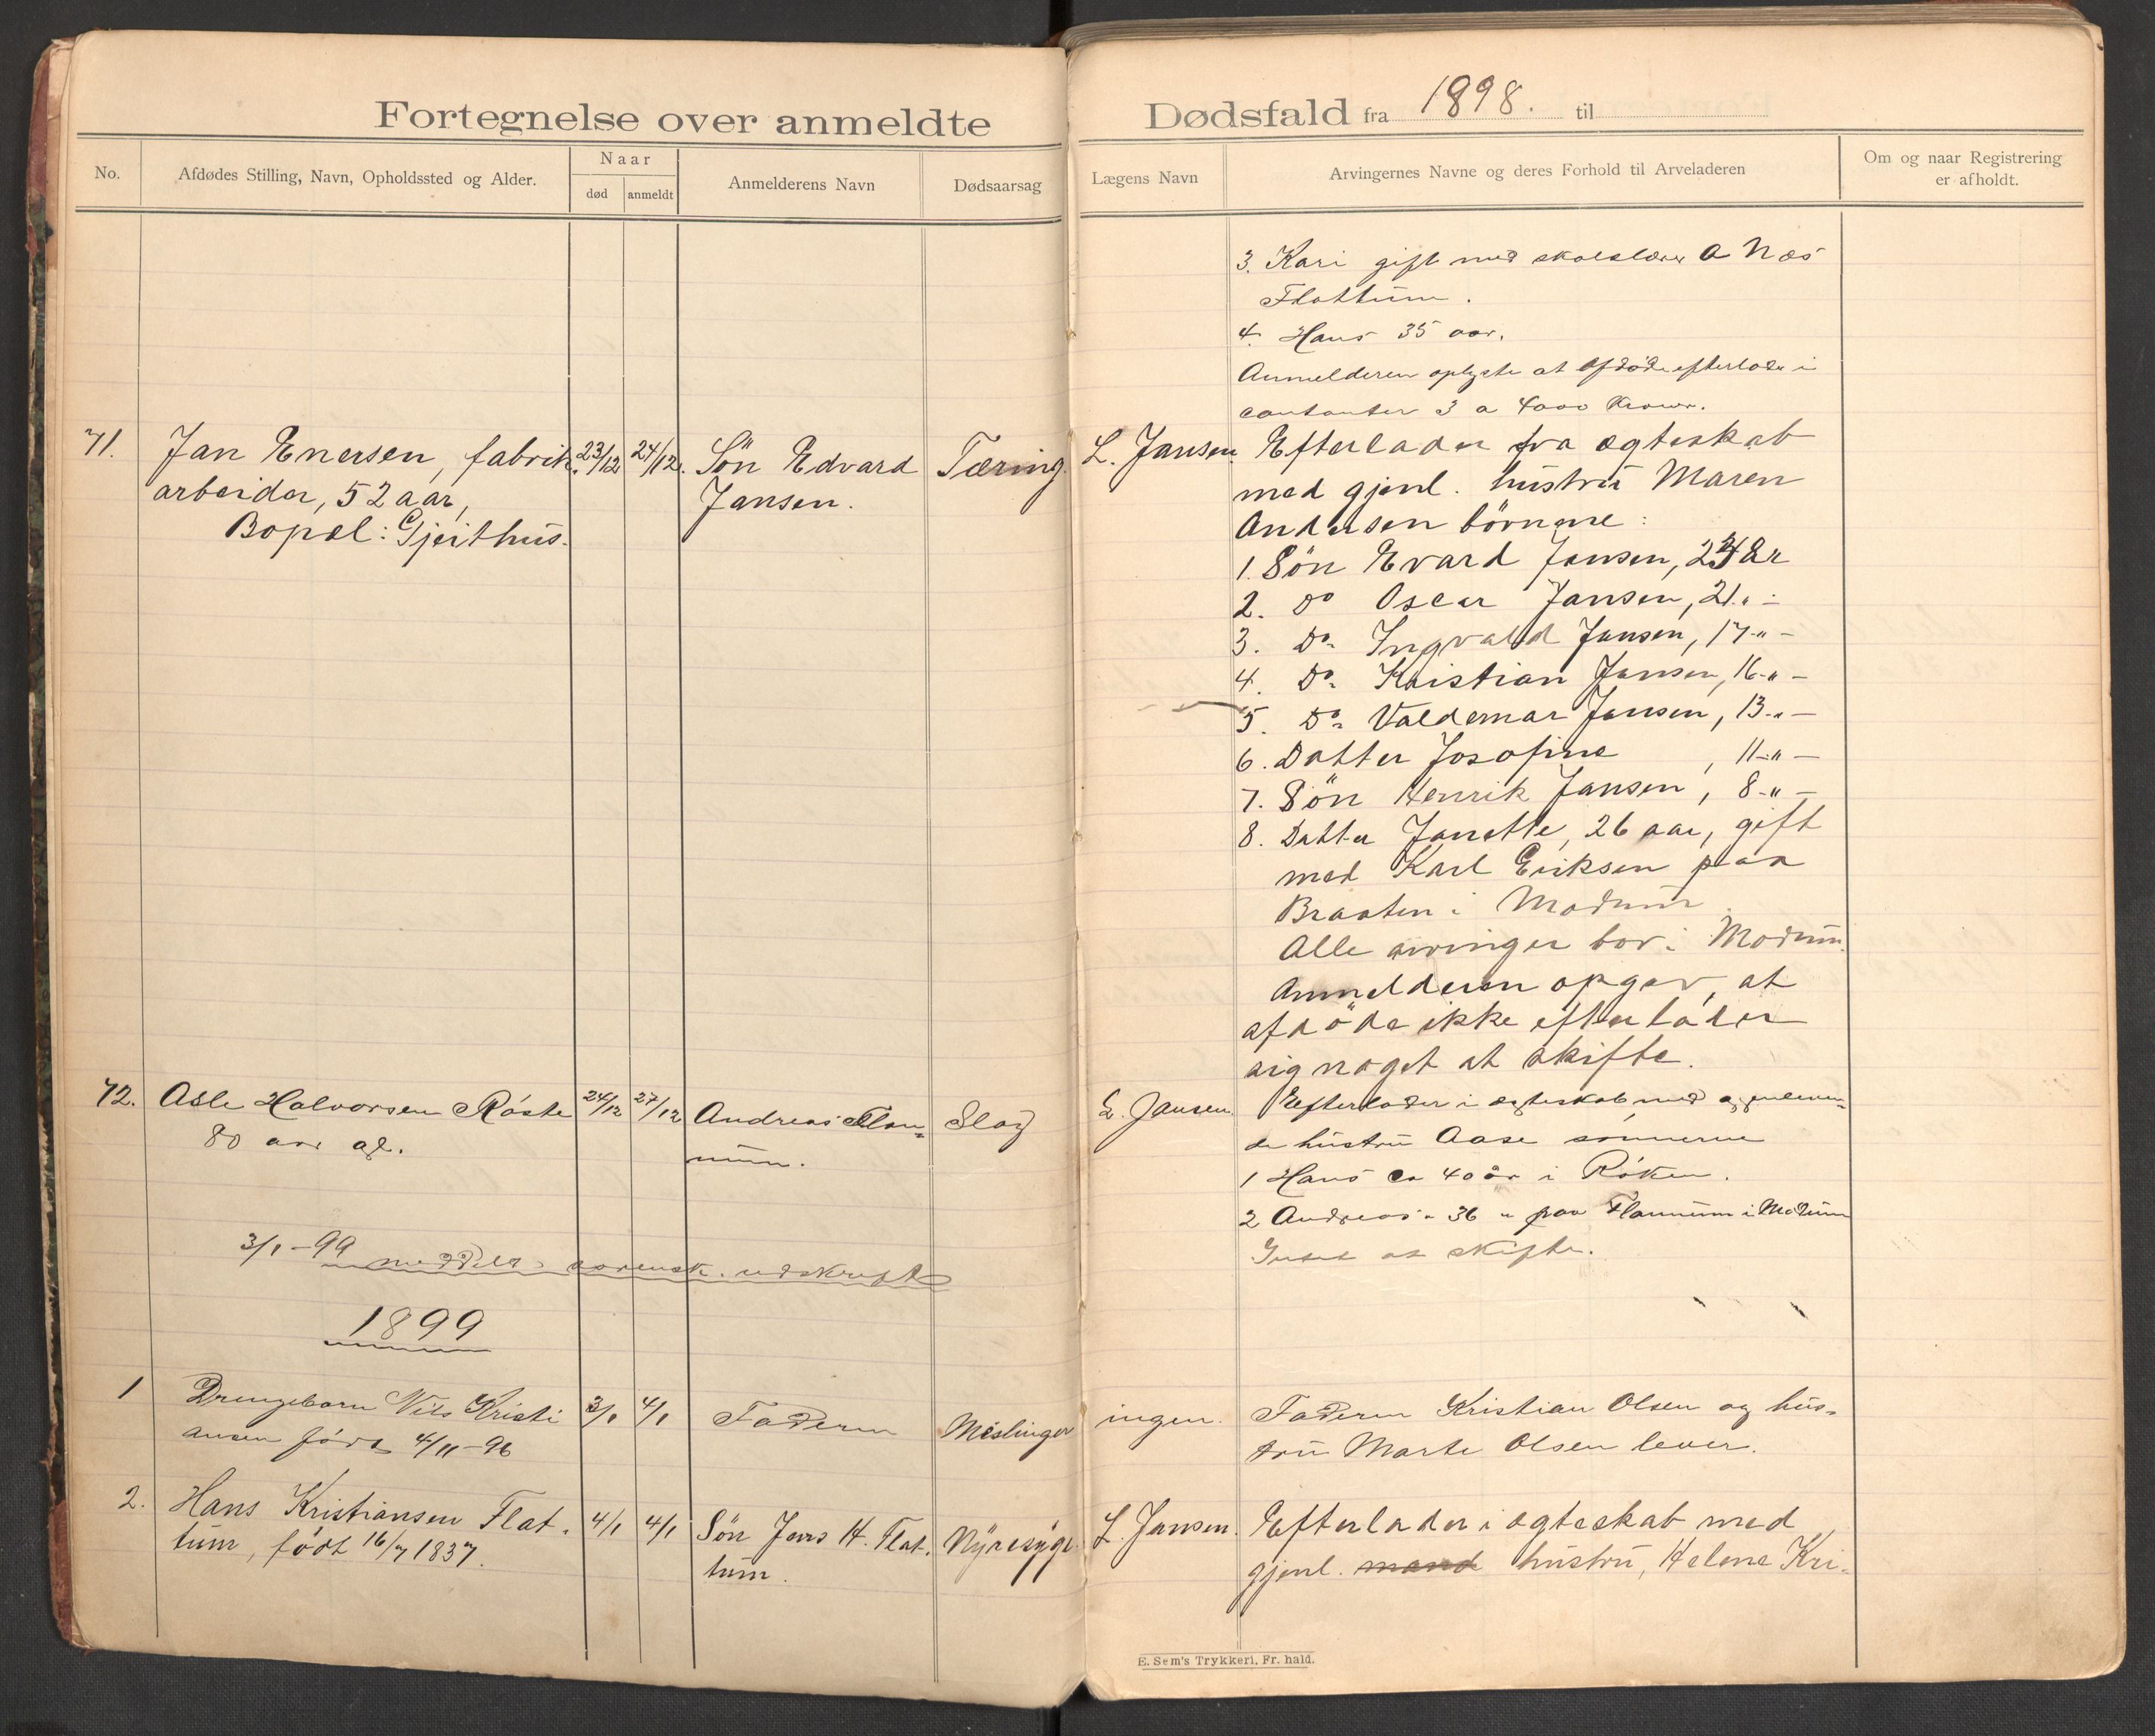 Fortegnelse over anmeldte
Dødsfald fra 1898. til
No.
Afdødes Stilling, Navn, Opholdssted og Alder.
Naar
død
anmeldt
Anmelderens Navn
Dødsaarsag
Lægens Navn
Arvingernes Navne og deres Forhold til Arveladeren
Om og naar Registrering
er afholdt.
3. Kari gift med skolelærer A Næs
Flattum.
4. Hans 35 aar.
Anmelderen oplyste at afdöde efterlader i
contanter 3 a 4000 Kroner.
71. Jan Enersen, fabrik- 23/12 24/12. Sön Edvard Tæring. L. Jansen. Efterlader fra ægteskab
arbeider, 52 aar, Jansen. med gjenl. hustru Maren
Bopæl: Gjeithus. Andersen börnene:
1. Sön Evard Jansen, 24 år
2. Do Oscar Jansen, 21 " -
3. Do Ingvald Jansen, 17 - " -
4. Do Kristian Jansen, 16 - " -
5. Do Valdemar Jansen, 13 - " -
6. Datter Josefine , 11 - " -
7. Sön Henrik Jansen, 8 - " -
8. Datter Janette, 26 aar, gift
med Karl Eriksen paa
Braaten i Modum
Alle arvinger bor i Modum.
Anmelderen opgav, at
afdöde ikke efterlader
sig noget at skifte.
72. Asle Halvorsen Röste 24/12 27/12 Andreas Flan= Slag L. Jansen. Efterlader i ægteskab med gjenleven=
80 aar gl. num. de hustru Aase sönnerne
1 Hans ca 40 år i Röken.
2 Andreas " 36 " paa Flannum i Modum
Intet at skifte.
3/1-99 meddelt sorensk. udskrift
1899
1 Drengebarn Nils Kristi 3/1 4/1 Faderen Meslinger ingen. Faderen Kristian Olsen og hus=
ansen födt 4/11-96 tru Marte Olsen lever.
2. Hans Kristiansen Flat- 4/1 4/1 Sön Jens H. Flat- Nyresyge L. Jansen. Efterlader i ægteskab med
tum, födt 16/7 1837. tum. gjenl. mand hustru, Helene Kri-
E. Sem's Trykkeri, Fr. hald.